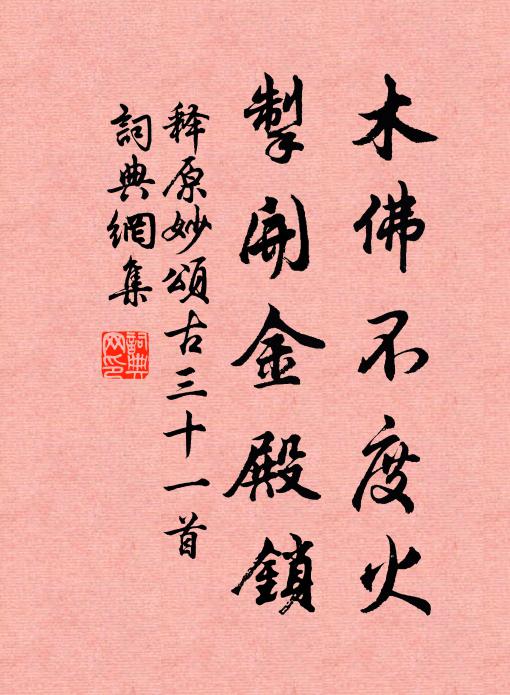 木佛不度火
掣開金殿鎖
释原妙頌古三十一首
詞典網集
詞典网印